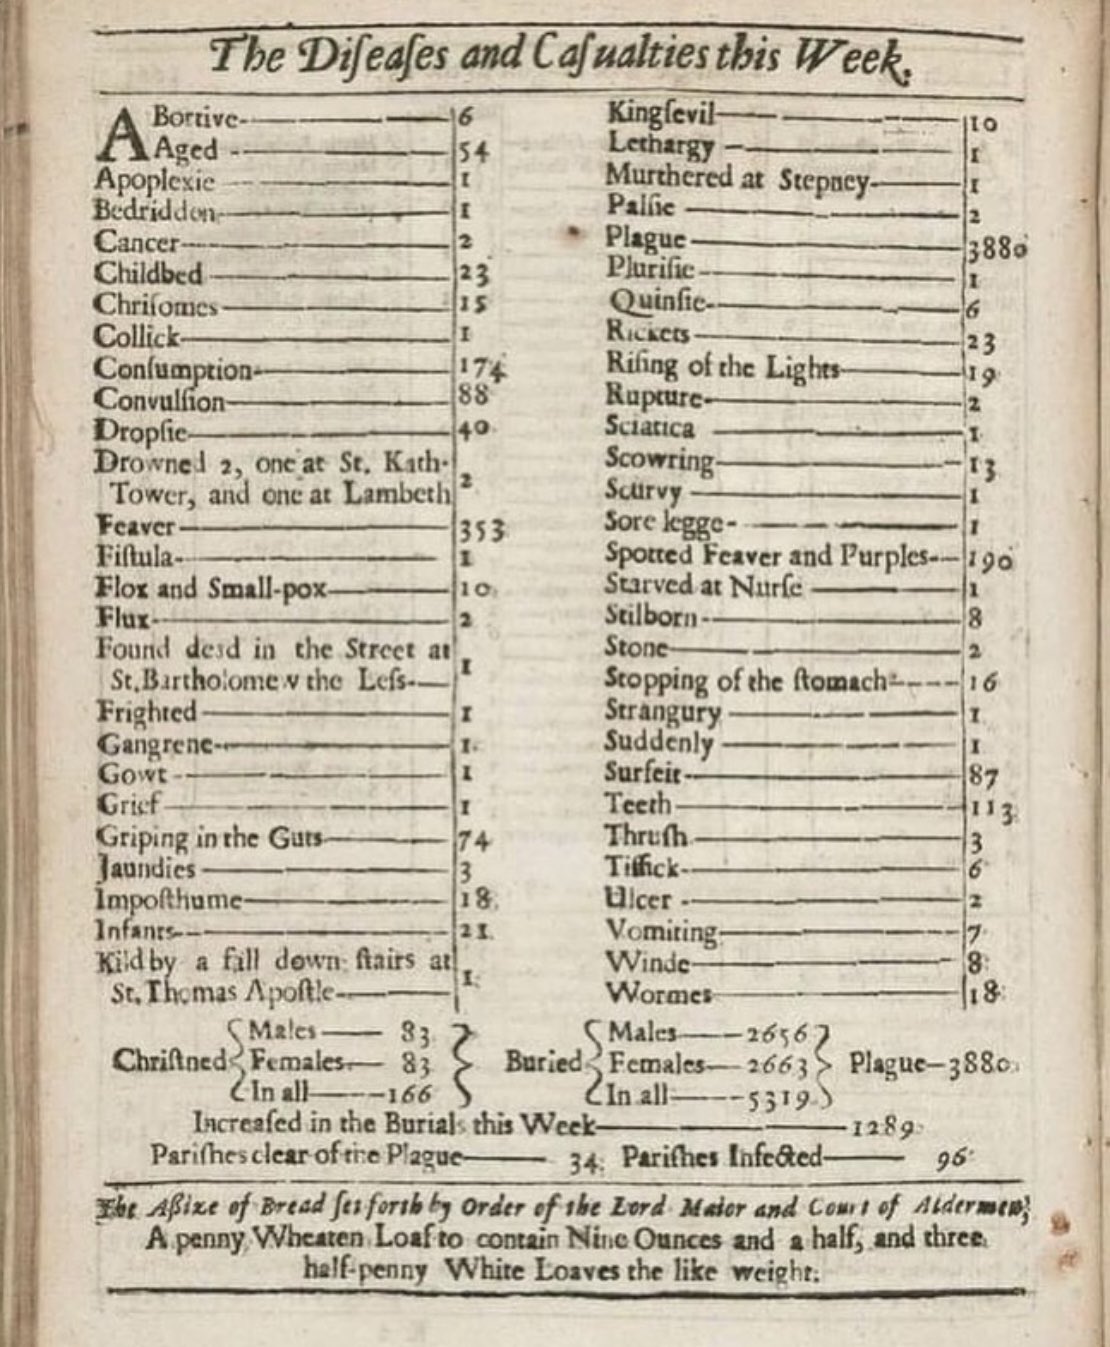 The Diſeaſes and Caſualties this Week.
ABortive 6
Aged 54
Apoplexie 1
Bedridden 1
Cancer 2
Childbed 23
Chriſomes 15
Collick 1
Conſumption 174
Convulſion 88
Dropſie 40
Drowned 2, one at St. Kath-
Tower, and one at Lambeth 2
Feaver 353
Fiſtula 1
Flox and Small-pox 10
Flux 2
Found dead in the Street at
St. Bartholomew the Leſs 1
Frighted 1
Gangrene 1
Gowt 1
Grief 1
Griping in the Guts 74
Jaundies 3
Impoſthume 18
Infants 21
Kild by a fall down ſtairs at
St. Thomas Apoſtle 1
Kingſevil 10
Lethargy 1
Murthered at Stepney 1
Palſie 2
Plague 3880
Pluriſie 1
Quinſie 6
Rickets 23
Riſing of the Lights 19
Rupture 2
Sciatica 1
Scowring 13
Scurvy 1
Sore legge 1
Spotted Feaver and Purples 190
Starved at Nurſe 1
Stilborn 8
Stone 2
Stopping of the ſtomach 16
Strangury 1
Suddenly 1
Surfeit 87
Teeth 113
Thruſh 3
Tiſſick 6
Ulcer 2
Vomiting 7
Winde 8
Wormes 18
Chriſtned { Males 83 Females 83 In all 166 }
Buried { Males 2656 Females 2663 In all 5319 } Plague 3880
Increaſed in the Burials this Week 1289
Pariſhes clear of the Plague 34 Pariſhes Infected 96
The Aſſize of Bread ſet forth by Order of the Lord Maior and Court of Aldermen,
A penny Wheaten Loaf to contain Nine Ounces and a half, and three
half-penny White Loaves the like weight.